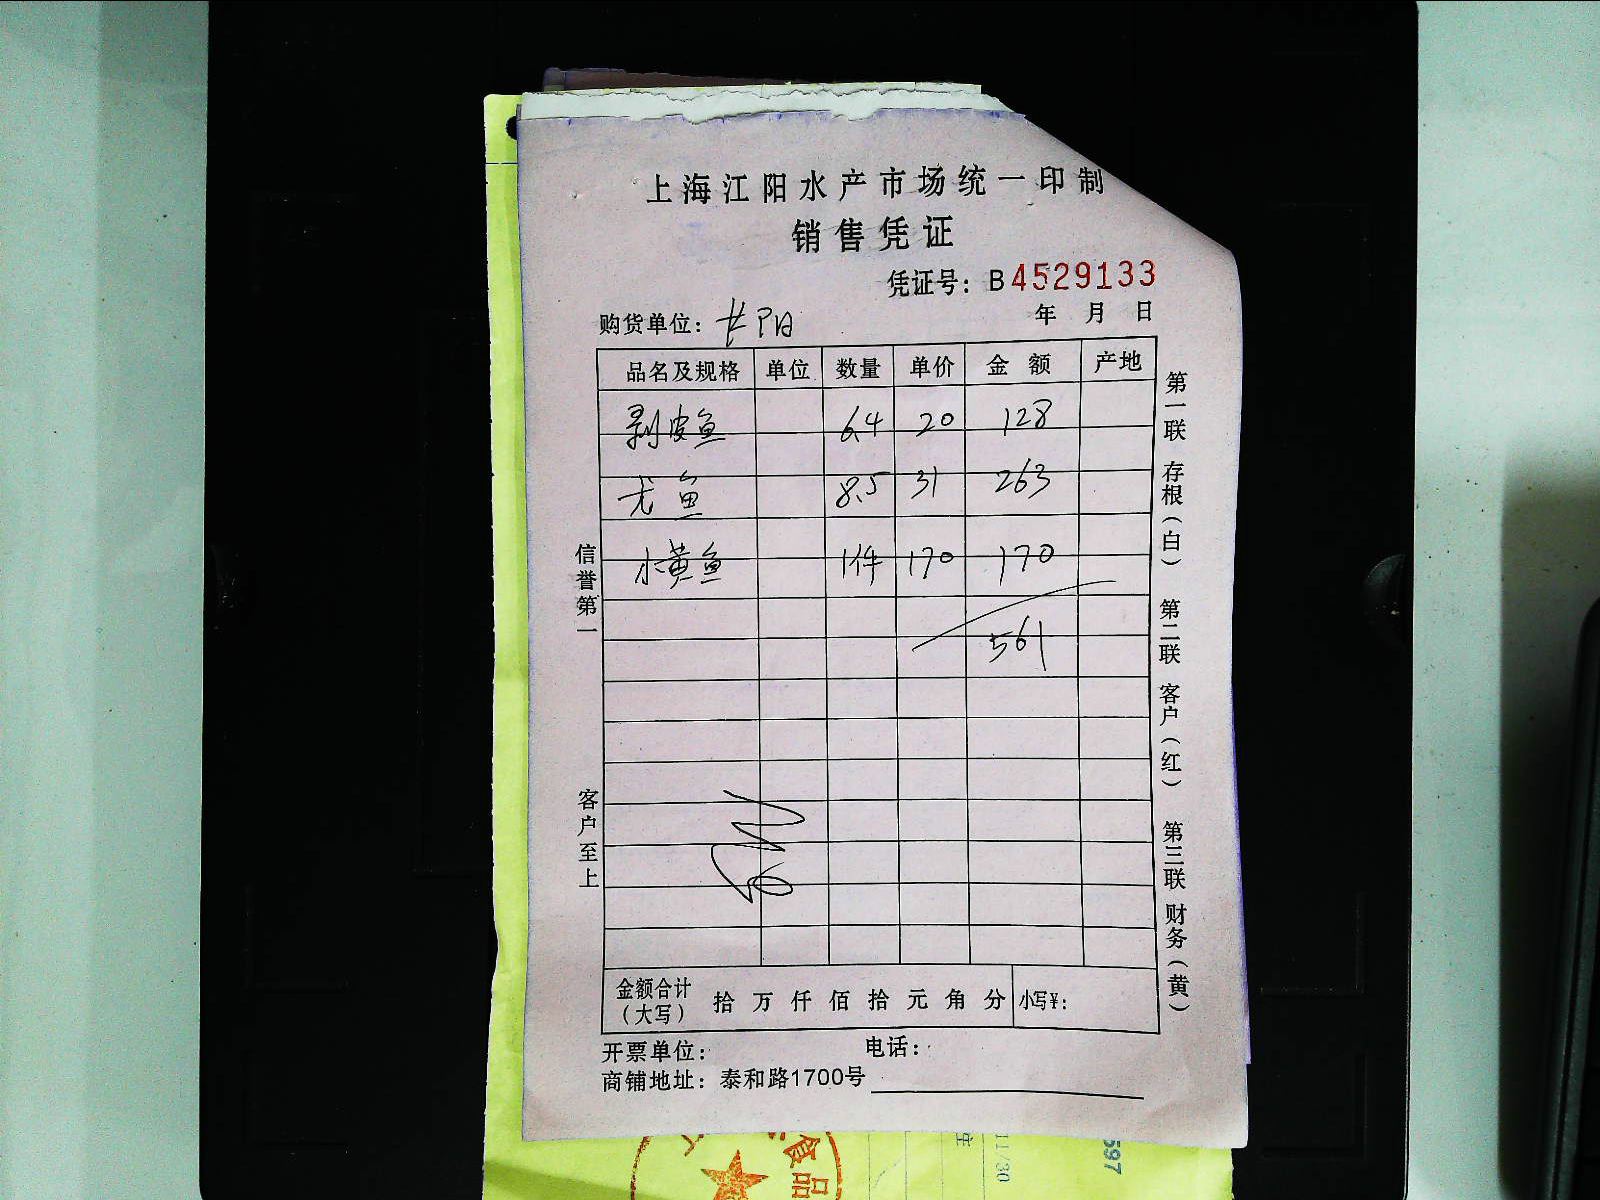 上海江阳水产市场统一印制
销售凭证
凭证号：B4529133
购货单位：长阳 年 月 日
品名及规格 单位 数量 单价 金额 产地
剥皮鱼 6.4 20 128
尤鱼 8.5 31 263
小黄鱼 1件 170 170
561
金额合计（大写） 拾 万 仟 佰 拾 元 角 分 小写¥：
开票单位： 电话：
商铺地址：泰和路1700号
信誉第一
客户至上
第一联 存根（白） 第二联 客户（红） 第三联 财务（黄）
食品
11/30
597